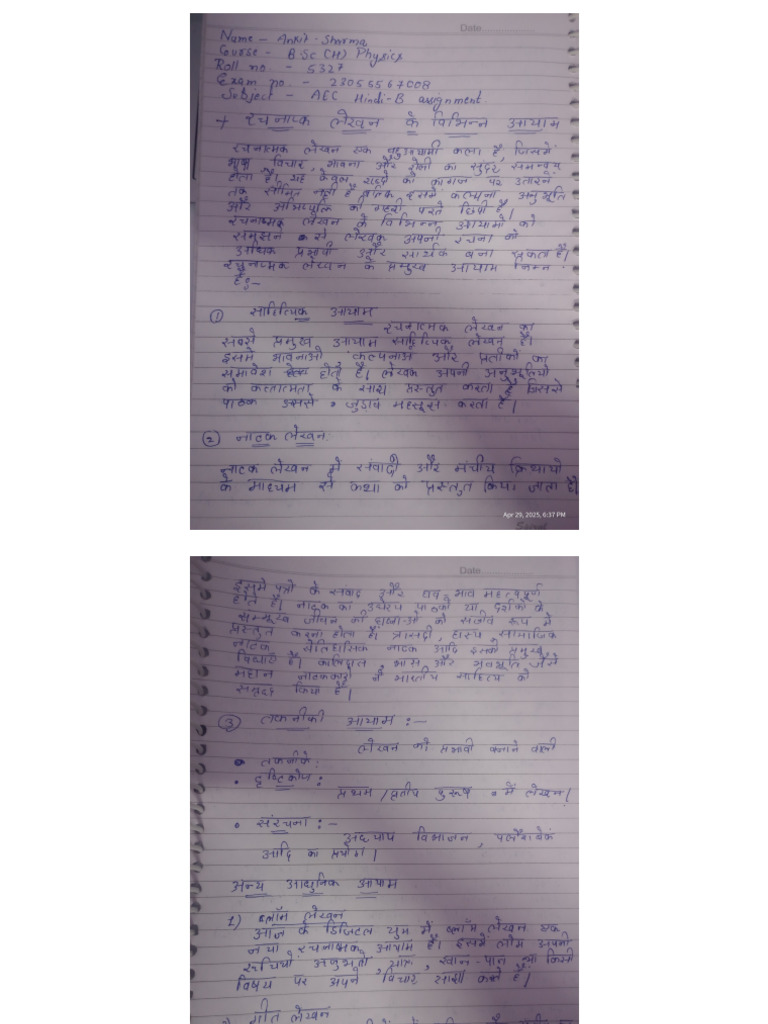 Date
Name - Ankit Sharma
Course - B.Sc (H) Physics
Roll no. - 5327
Exam no. - 23055567008
Subject - AEC Hindi-B assignment.
रचनात्मक लेखन के विभिन्न आयाम
रचनात्मक लेखन एक बहुआयामी कला है, जिसमें
भाषा, विचार, भावना और शैली का सुंदर समन्वय
होता है। यह केवल शब्दों को कागज पर उतारने
तक सीमित नहीं है बल्कि इसमें कल्पना अनुभूति
और अभिव्यक्ति की गहरी परतें छिपी है।
रचनात्मक लेखन के विभिन्न आयामों को
समझने से लेखक अपनी रचना को
अधिक प्रभावी और सार्थक बना सकता है।
रचनात्मक लेखन के प्रमुख आयाम निम्न
है:-
① साहित्यिक आयाम
रचनात्मक लेखन का
सबसे प्रमुख आयाम साहित्यिक लेखन है।
इसमे भावनाओ कल्पनाओ और प्रतीकों का
समावेश होते है। लेखक अपनी अनुभूतियो
को कलात्मता के साथ प्रस्तुत करता है जिससे
पाठक उससे जुडाव महसूस करता है।
② नाटक लेखन:
नाटक लेखन में संवादों और मंचीय क्रियायो
के माध्यम से कथा को प्रस्तुत किया जाता है।
Apr 29, 2025, 6:37 PM
Date
इसमे पत्रो के सवाद और हाव भाव महत्वपूर्ण
होते है। नाटक का उदेश्य पाठको या दर्शको के
सम्मुख जीवन की को सजीव रूप मे
प्रस्तुत करना होता है। त्रासदी, हास्य, सामाजिक
नाटक ऐतिहासिक नाटक आदि इसके प्रमुख
विधाएं है। कालिदास, भास और भवभूति जैसे
महान नाटककारो ने भारतीय साहित्य को
समृद्ध किया है।
③ तकनीकी आयाम :-
लेखन को प्रभावी बनाने वाली
• तकनीके:
• दृष्टिकोण:
प्रथम / तृतीय पुरूष में लेखन।
• संरचना :-
अध्याय विभाजन, फ्लैशबैक
आदि का प्रयोग।
अन्य आधुनिक आयाम
1) ब्लॉग लेखन
आज के डिजिटल युग में ब्लॉग लेखन एक
नया रचनात्मक आयाम है। इसमें लोग अपनी
रूचियो अनुभवो, यात्रा, खान-पान या किसी
विषय पर अपने विचार साझा करते है।
गीत लेखन